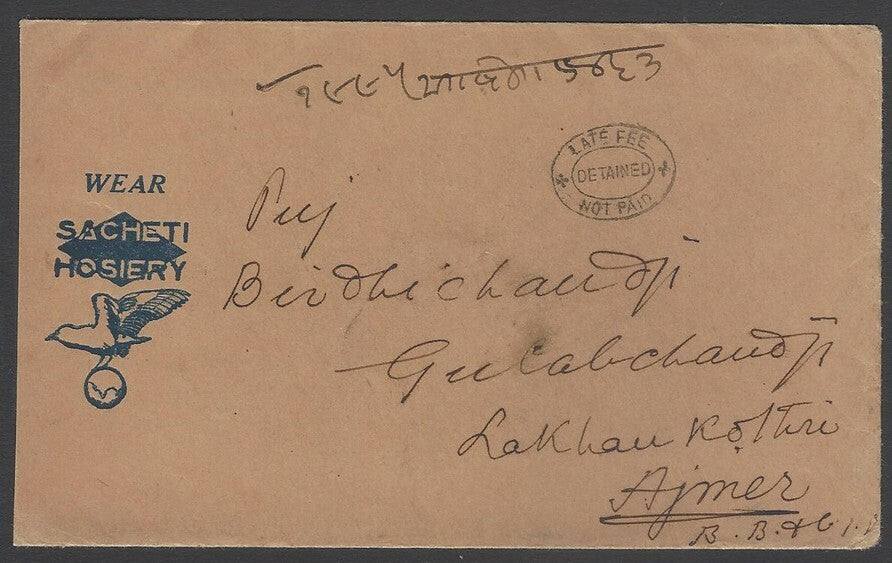 WEAR
SACHETI
HOSIERY
LATE FEE
DETAINED
NOT PAID
Birdhichandji
Gulabchandji
Lakhan Kothri
Ajmer
B. B. & C. I.